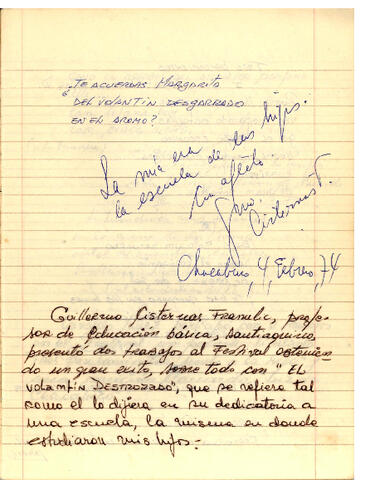 ¿TE ACUERDAS MARGARITA
DEL VOLANTÍN DESGARRADO
EN EL AROMO?
La mía era
la escuela de tus hijos.
Con afecto
Gmo. Cisternas F.
4, Febrero, 74
Guillermo Cisternas Franulic, profe-
sor de educación básica, santiaguino,
presentó dos trabajos al Festival obtenien-
do un gran exito, sobre todo con "EL
VOLANTÍN DESTROZADO", que se refiere tal
como el lo dijera en su dedicatoria a
una escuela, la misma en donde
estudiaron mis hijos.-